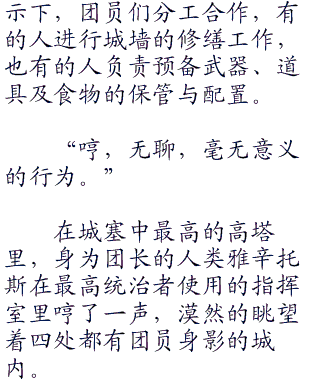 示下，团员们分工合作，有
的人进行城墙的修缮工作，
也有的人负责预备武器、道
具及食物的保管与配置。
“哼，无聊，毫无意义
的行为。”
在城塞中最高的高塔
里，身为团长的人类雅辛托
斯在最高统治者使用的指挥
室里哼了一声，漠然的眺望
着四处都有团员身影的城
内。